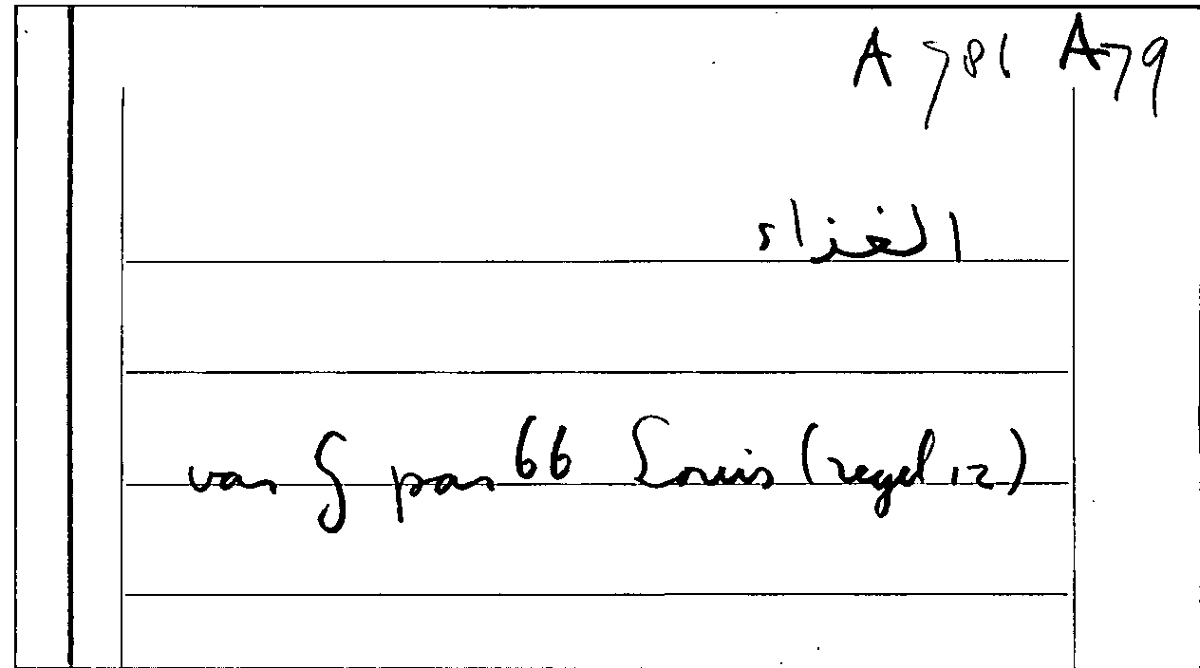 A 781 A79
الغذاء
van G pag 66 Louis (regel 12)